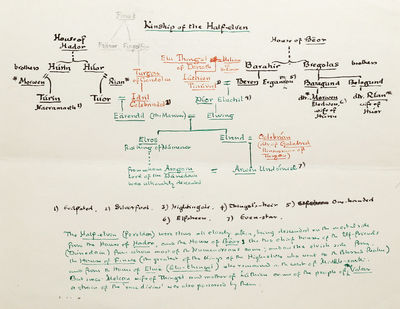 Kinship of the Half-elven
House of Hador
House of Bëor
Finwë
Elu Thingol = Melian
of Doriath
brothers Húrin Huor
Turgon
of Gondolin
Lúthien
Tinúviel
Barahir Bregolas brothers
* Morwen = Rían *
= Beren Ergamion 5)
Baragund Belegund
Túrin
Tuor = Idril
Celebrindal 2)
Dior Eluchíl 4)
dtr. Morwen
wife of
Húrin
dtr. Rían *
wife of
Huor
Eärendil (the Mariner) = Elwing
Elros
First King of Númenor
Elrond = Celebrían
from whom Aragorn
Lord of the
Dúnedain
was ultimately descended
= Arwen Undómiel 7)
2) Silverfoot. 3) Nightingale. 4) Thingol's-heir 5) One-handed
6) Elfsheen. 7) Even-star.
The Half-elven (Peredhil) were thus all closely akin, being descended on the mortal side
from the House of Hador, and the House of Bëor, the two chief houses of the Elf-friends
(Dúnedain) from whom most of the Númenóreans came, and on the elvish side from
the House of Finwë (the greatest of the Kings of the High-elves who went to the Blessed Realm)
and from the House of Elwë (Elu-thingol) who remained in the west of Middle-earth.
But since Melian wife of Thingol and mother of Lúthien was of the people of Valar
a strain of the 'race divine' was also possessed by them.